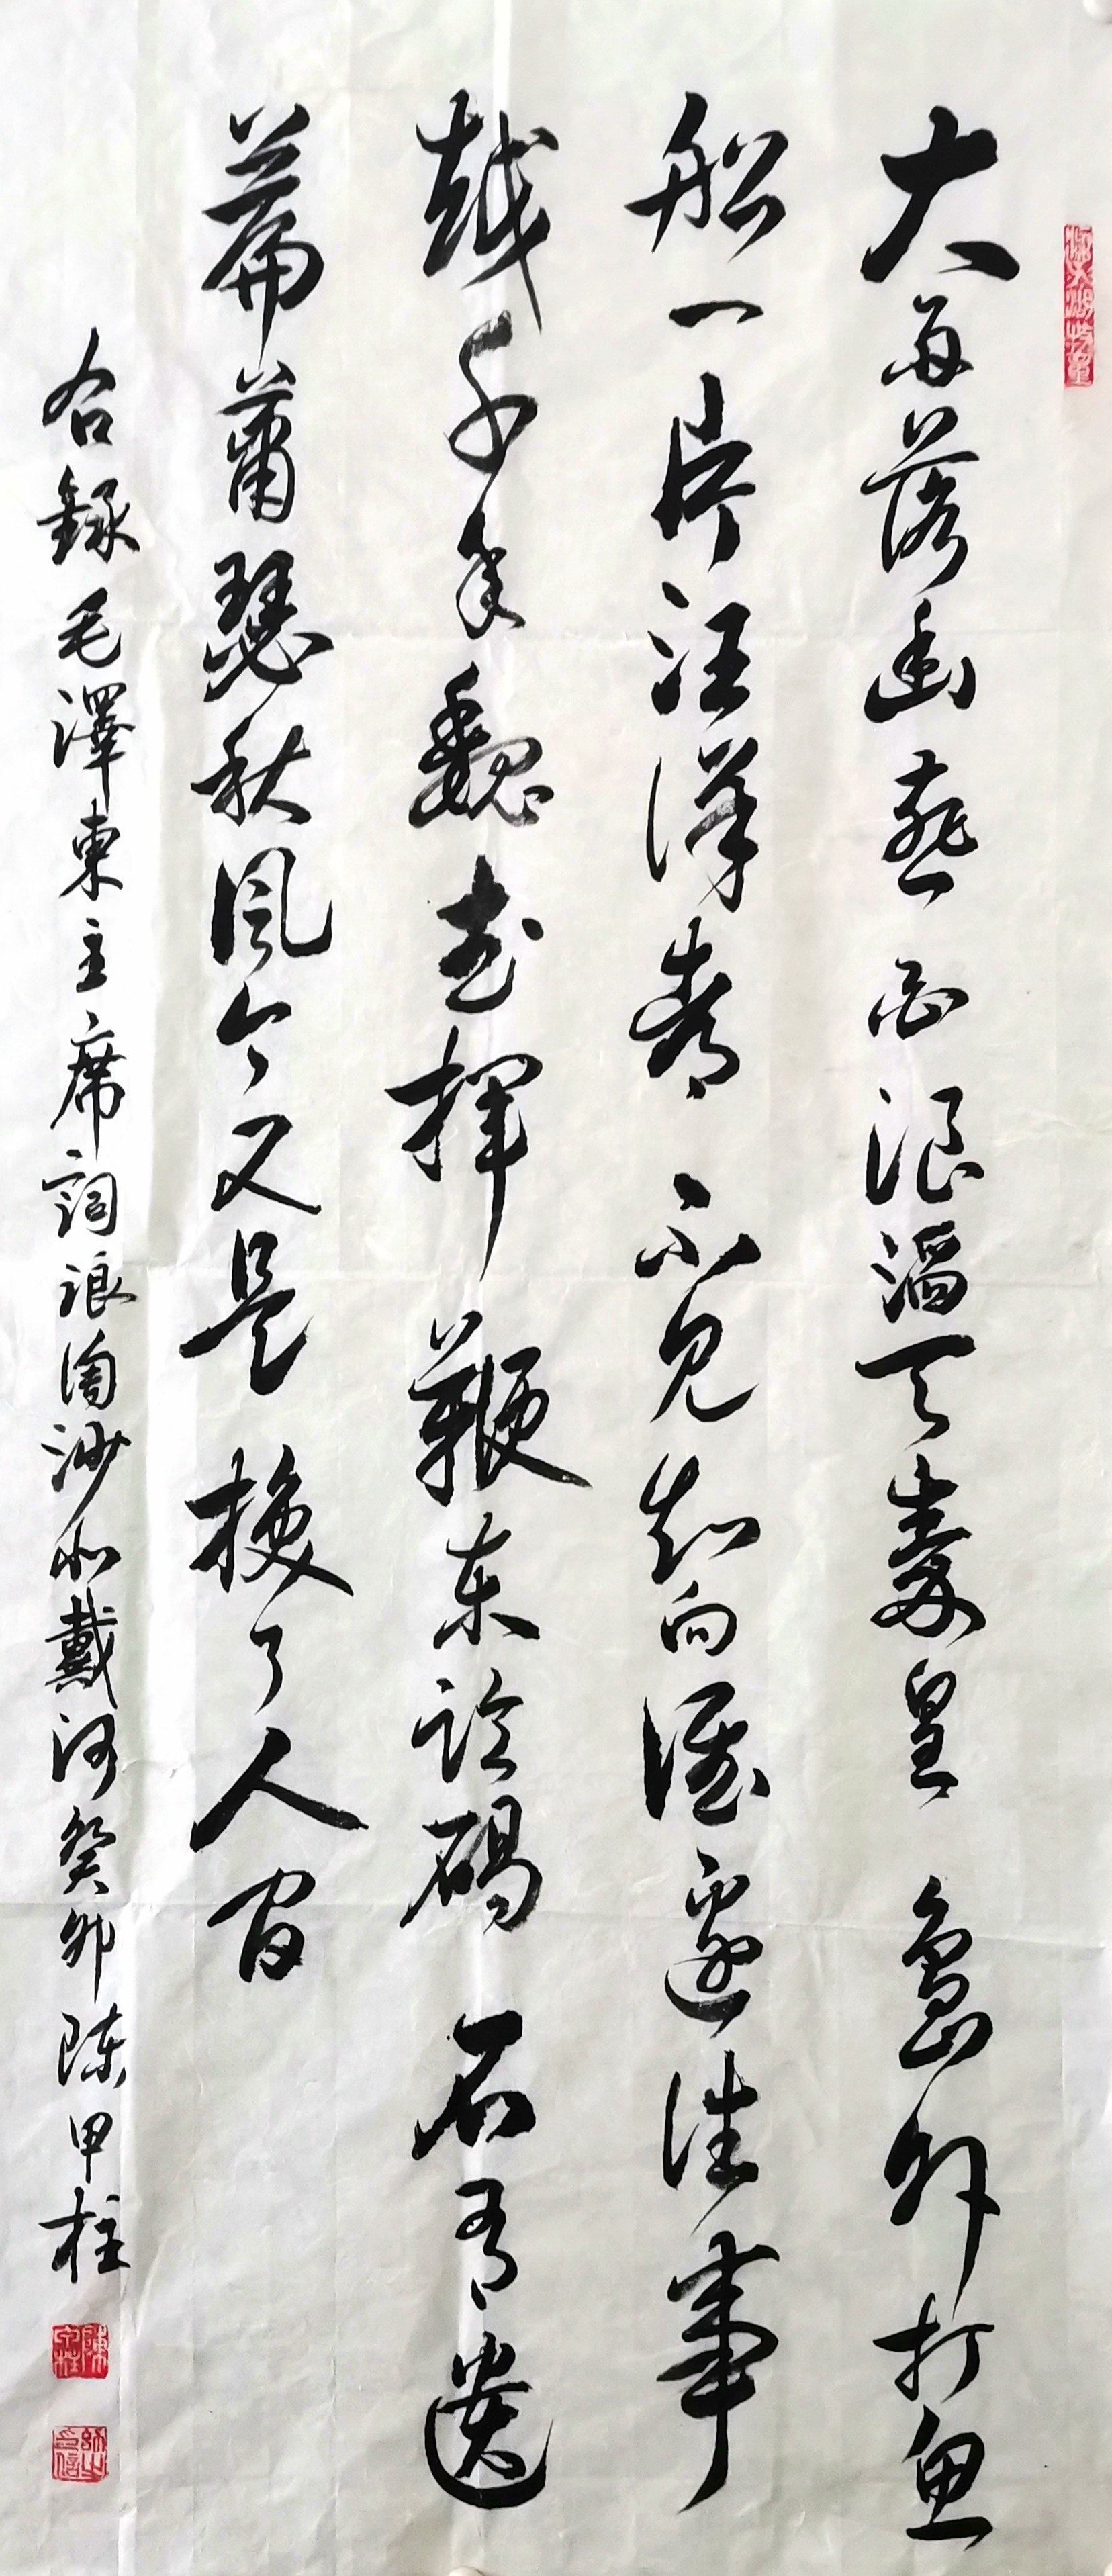 大雨落幽燕白浪滔天秦皇島外打鱼
船一片汪洋都不見知向誰邊往事
越千年魏武揮鞭东临碣石有遺
篇蕭瑟秋風今又是換了人间
右録毛澤東主席詞浪淘沙北戴河癸卯陈甲柱